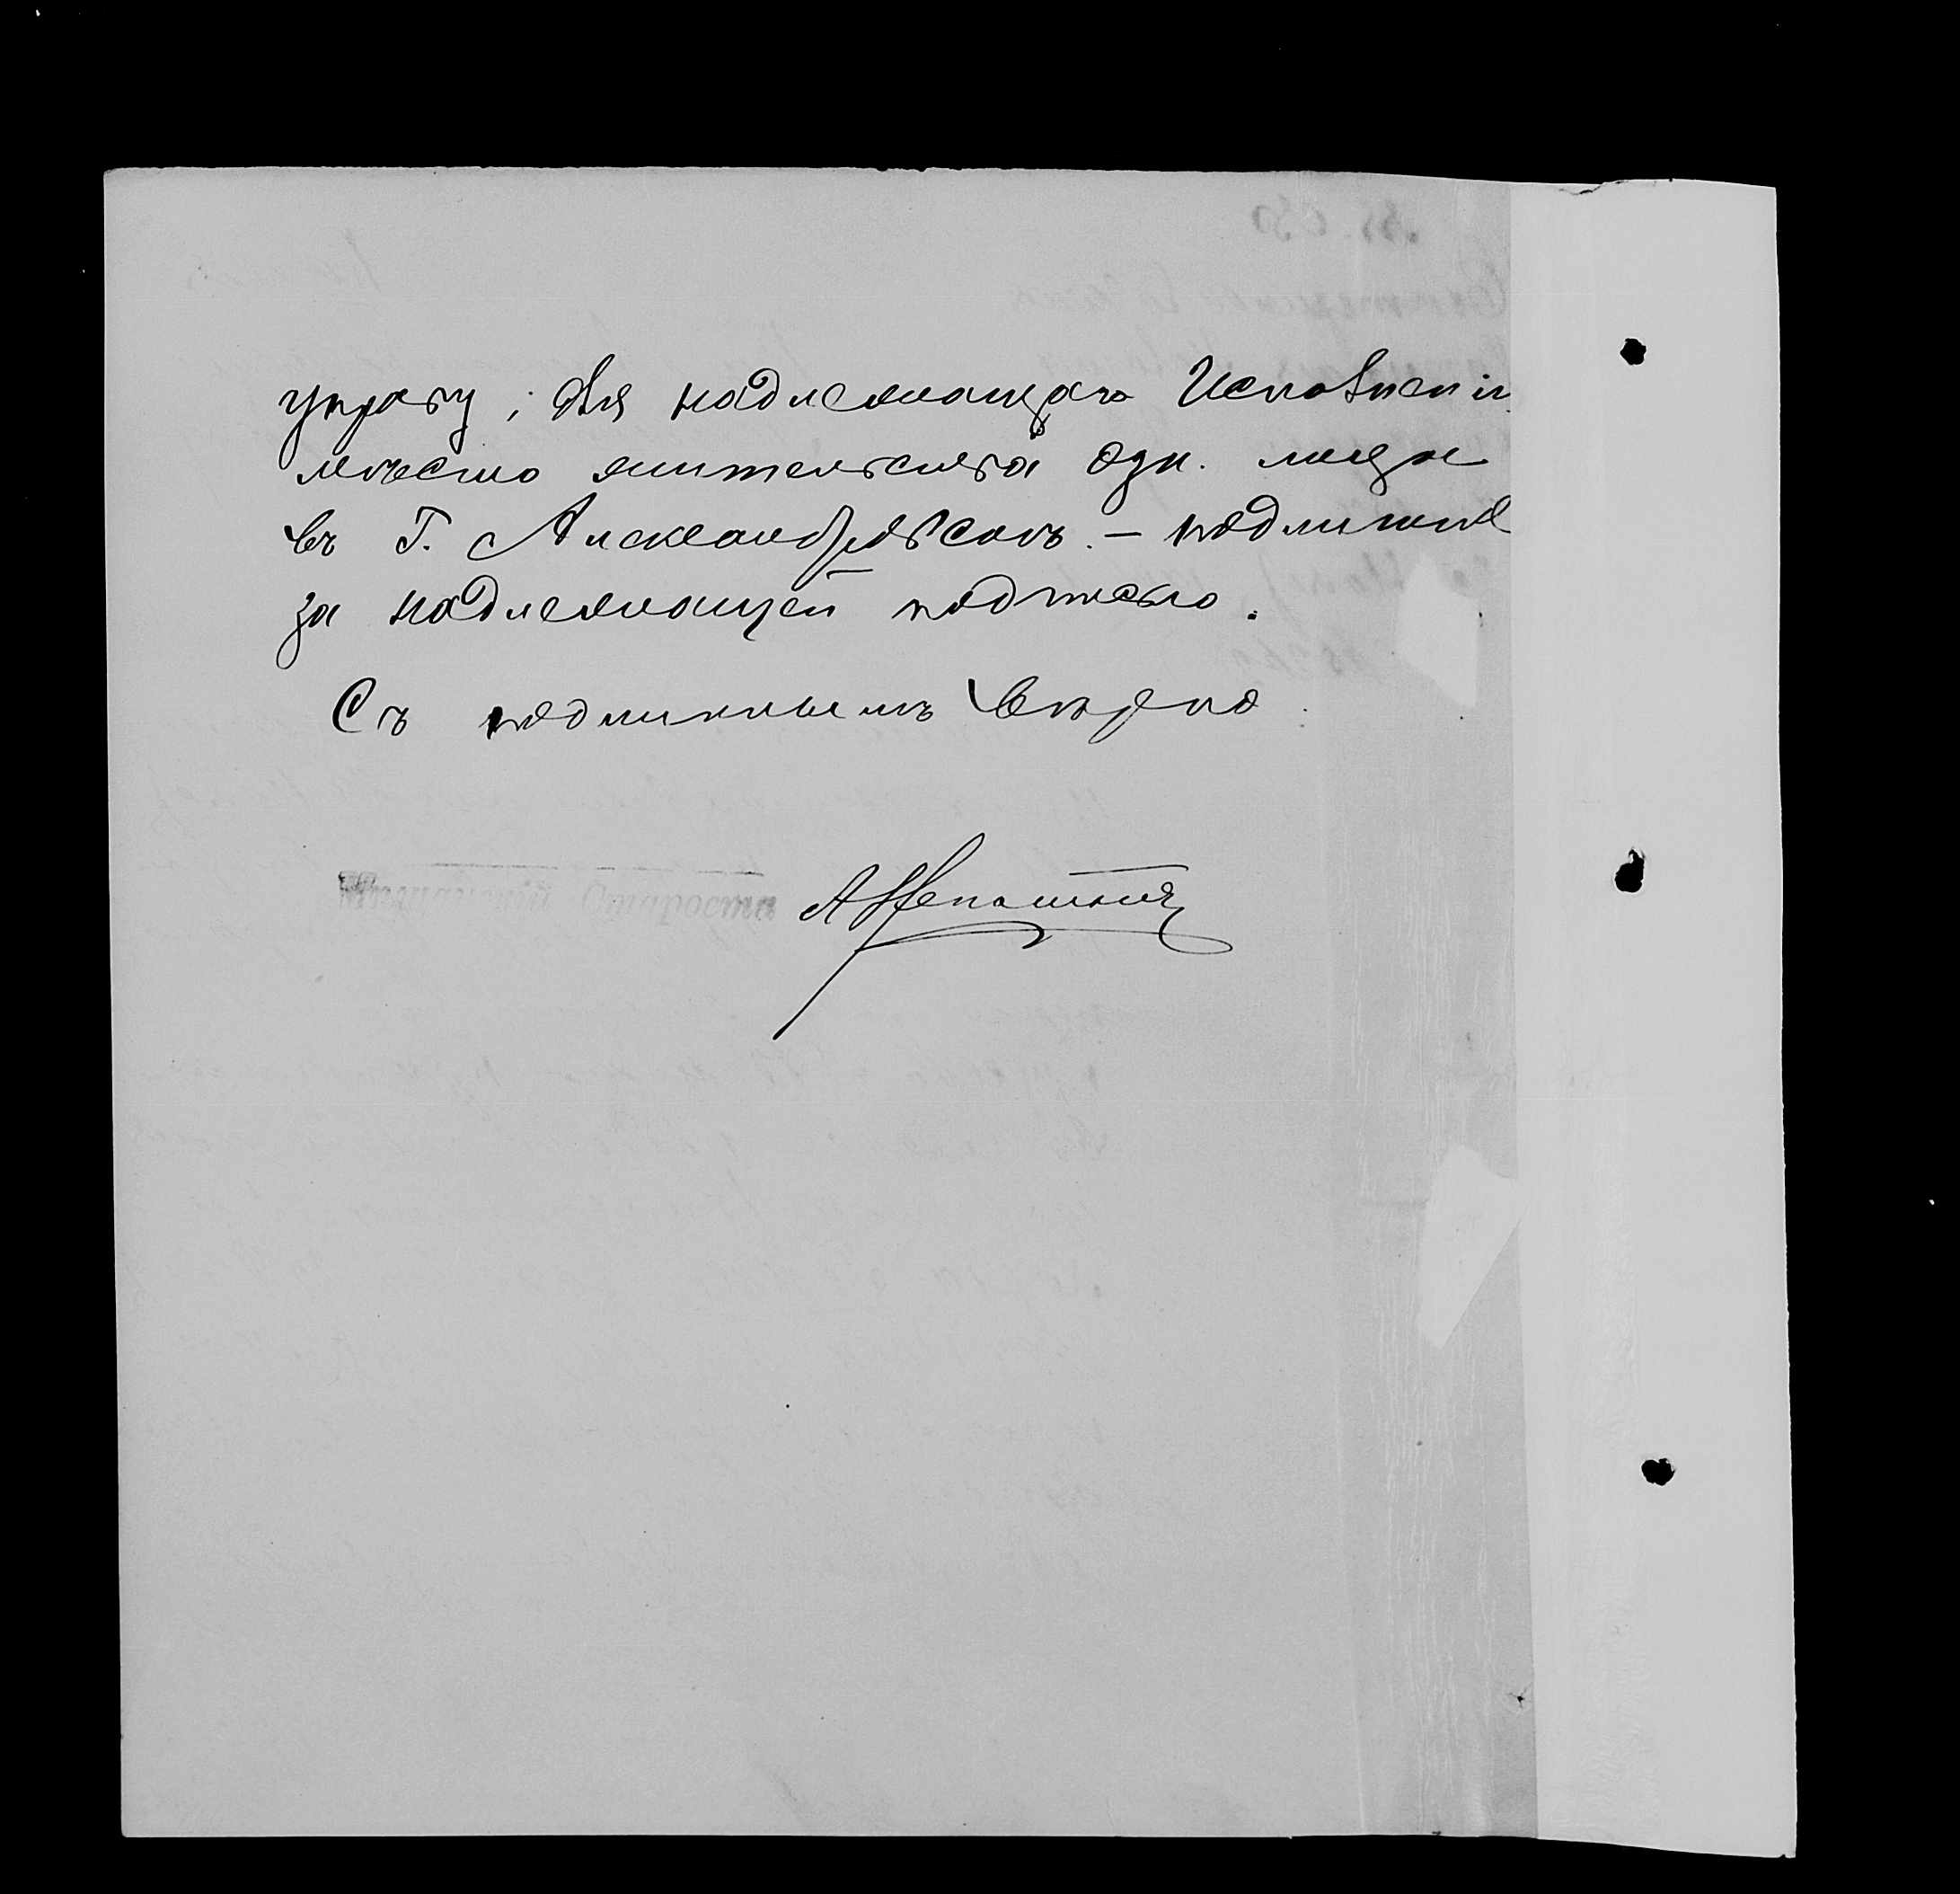 управу; для надлежащаго Исполненія
мѣсто жительства озн. лица
въ Г. Александровскѣ. — подлинное
за надлежащей подписью.
Съ подлиннымъ вѣрно
Мѣщанскій Староста